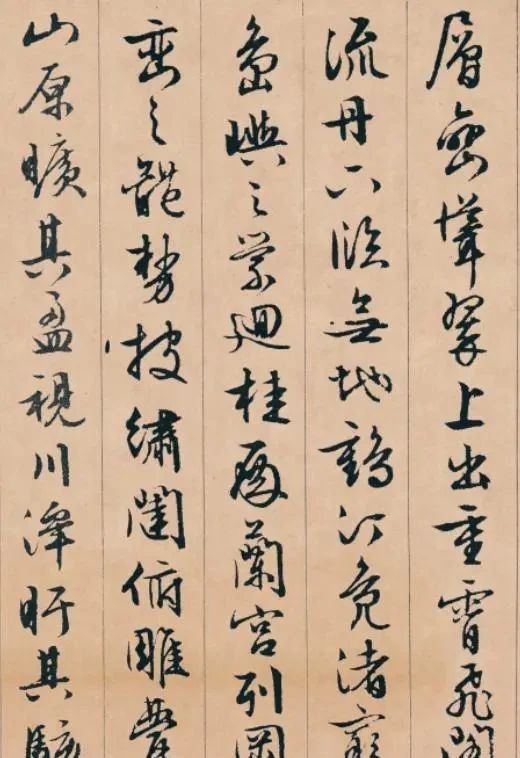 層巒聳翠上出重霄飛閣
流丹下臨無地鶴汀鳧渚窮
島嶼之縈迴桂殿蘭宮列岡
巒之體勢披繡闥俯雕甍
山原曠其盈視川澤盱其駭